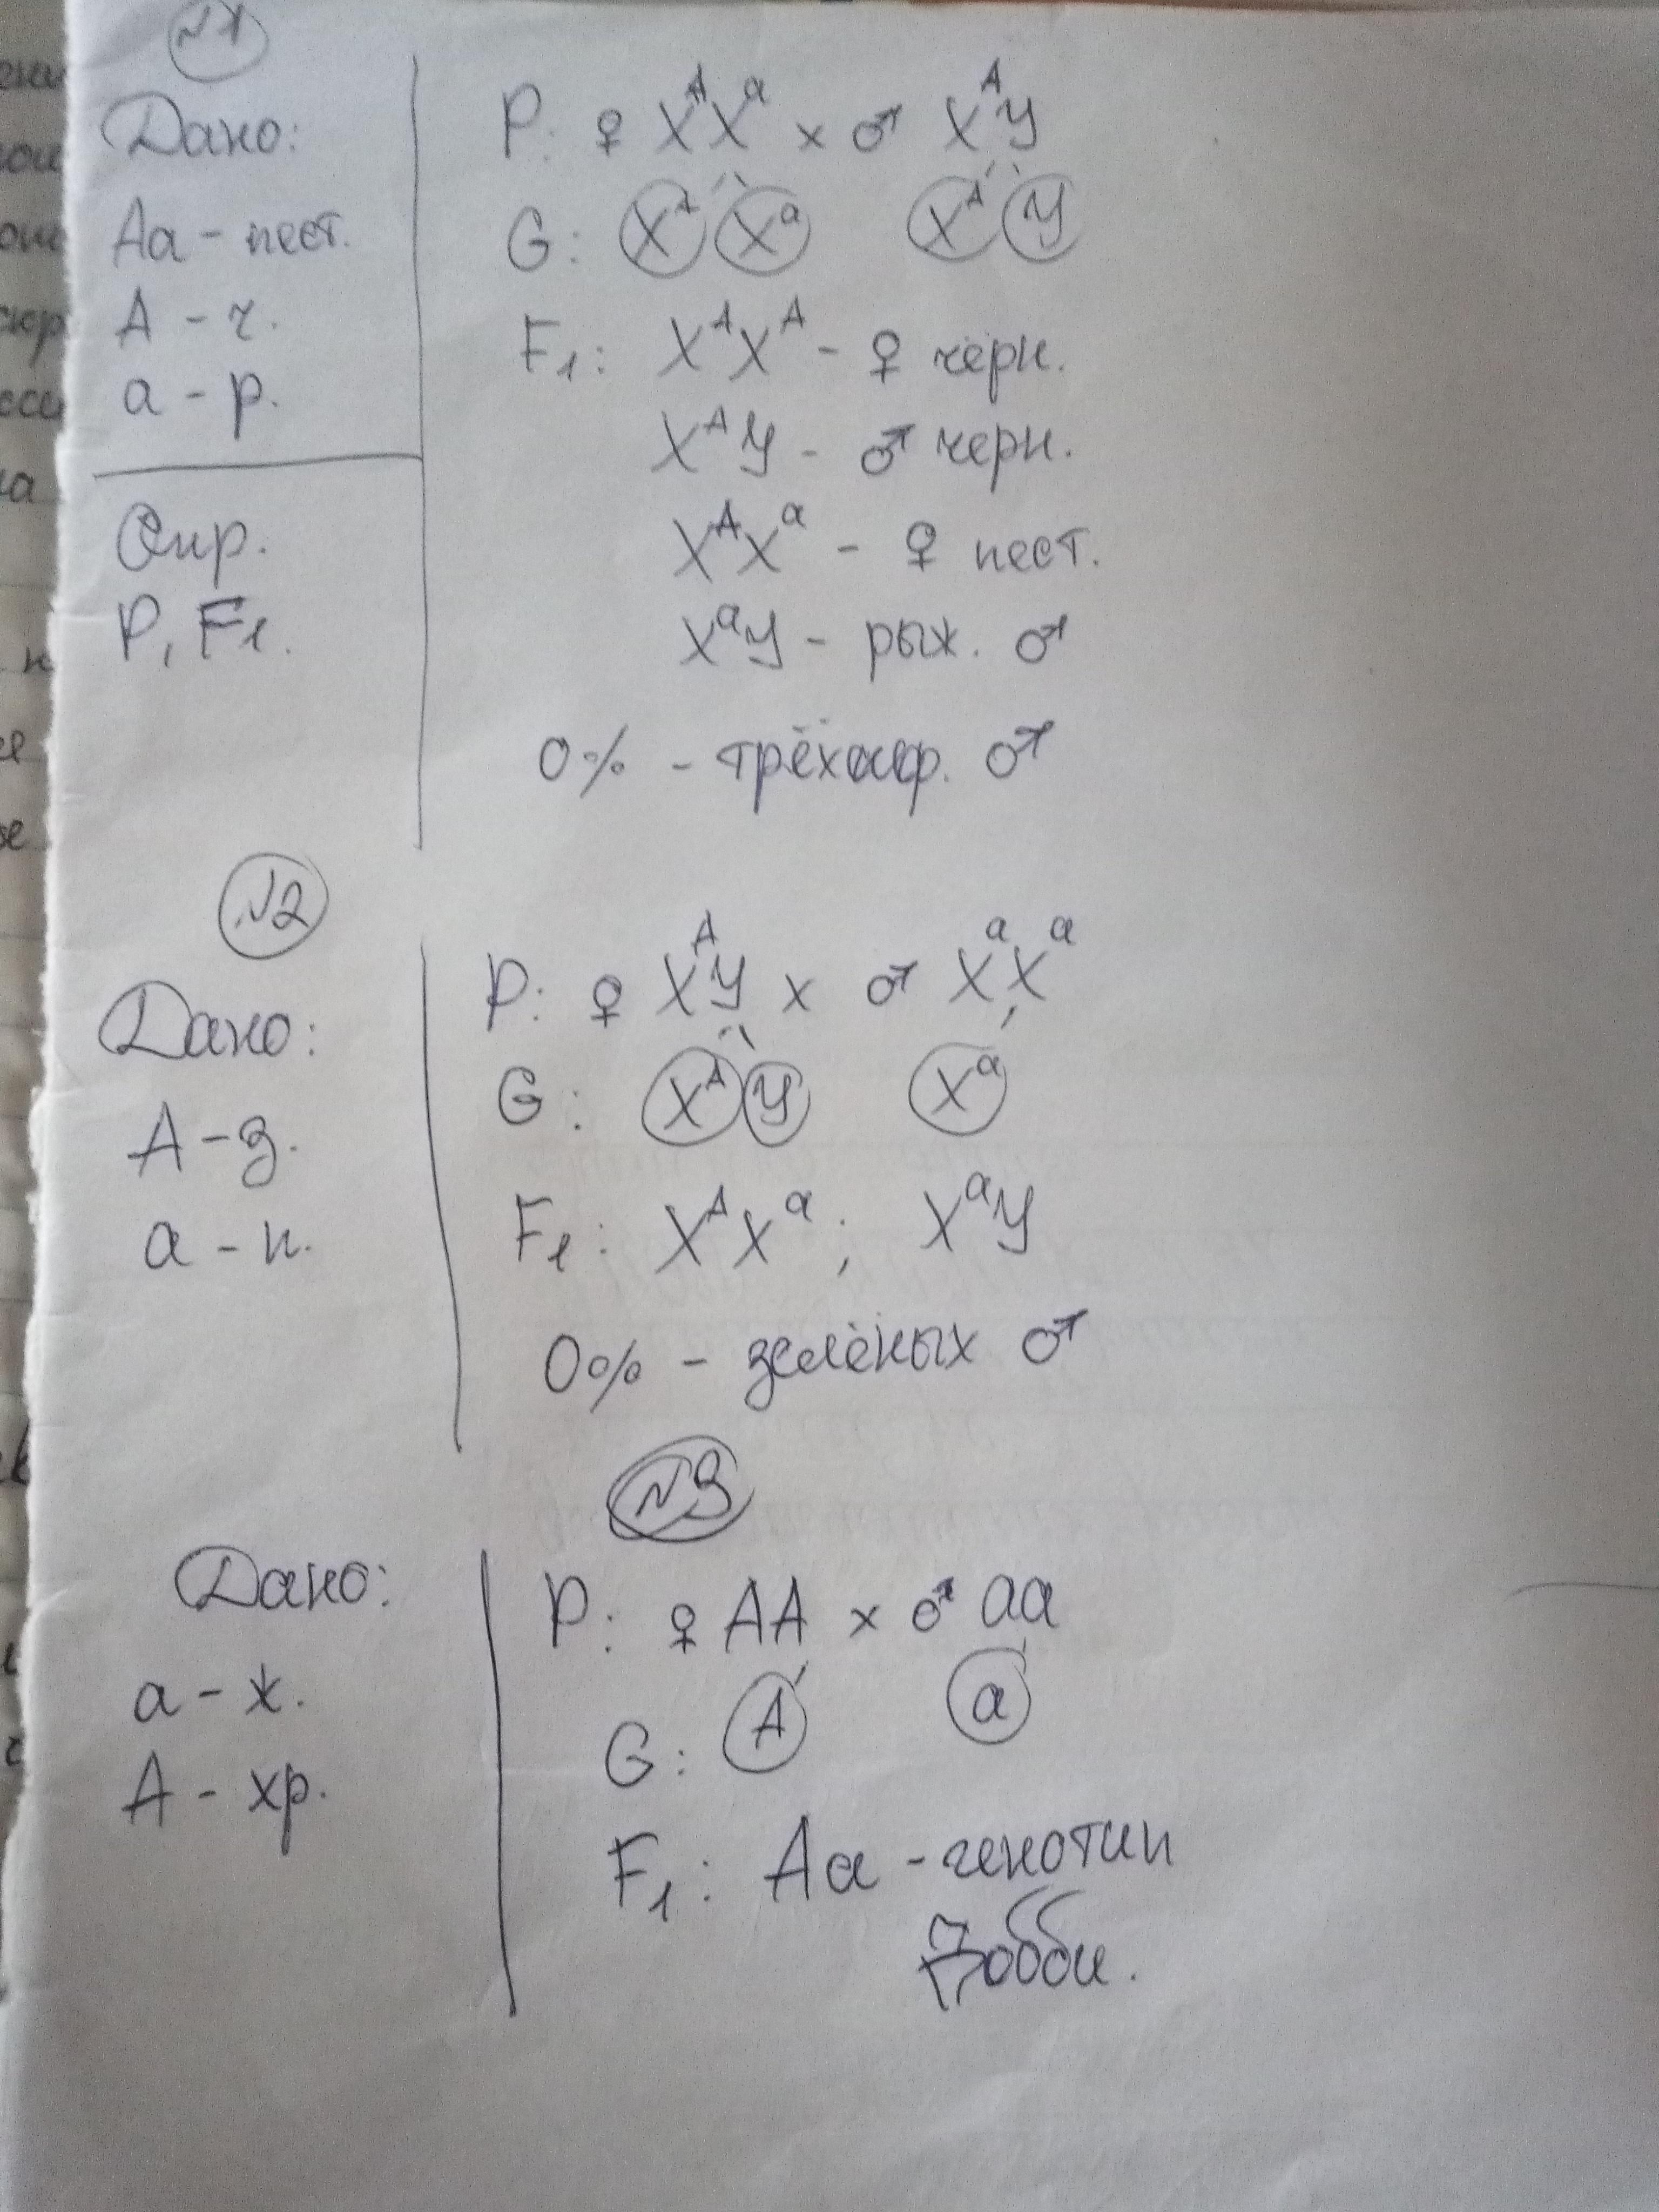 №1
Дано:
Aa - пест.
A - ч.
a - р.
Опр.
P, F1.
P: ♀ X^A X^a × ♂ X^A Y
G: X^A X^a X^A Y
F1: X^A X^A - ♀ черн.
X^A Y - ♂ черн.
X^A X^a - ♀ пест.
X^a Y - рыж. ♂
0% - трёхшёр. ♂
№2
Дано:
A - з.
a - к.
P: ♀ X^A Y × ♂ X^a X^a
G: X^A Y X^a
F1: X^A X^a ; X^a Y
0% - зелёных ♂
№3
Дано:
a - ж.
A - хр.
P: ♀ AA × ♂ aa
G: A a
F1: Aa - генотип
Бобби.